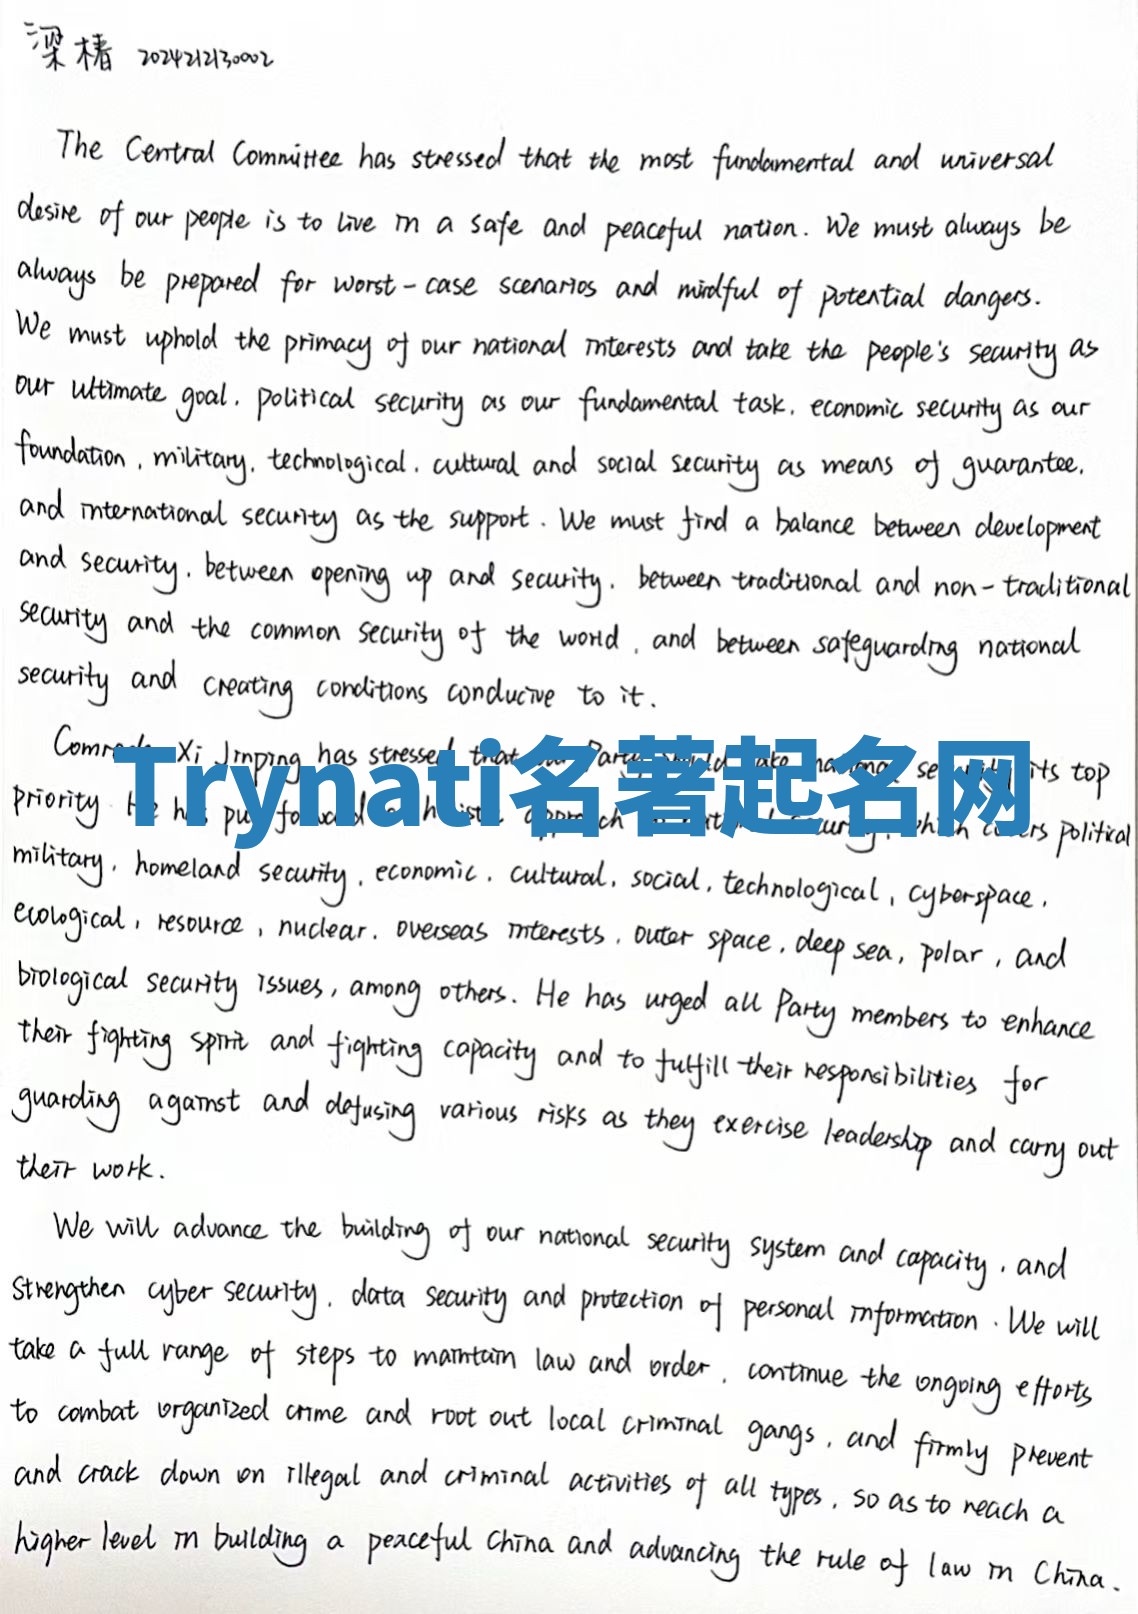 梁椿 2024212130002
The Central Committee has stressed that the most fundamental and universal
desire of our people is to live in a safe and peaceful nation. We must always be
always be prepared for worst-case scenarios and mindful of potential dangers.
We must uphold the primacy of our national interests and take the people's security as
our ultimate goal, political security as our fundamental task, economic security as our
foundation, military, technological, cultural and social security as means of guarantee,
and international security as the support. We must find a balance between development
and security, between opening up and security, between traditional and non-traditional
security and the common security of the world, and between safeguarding national
security and creating conditions conducive to it.
Xi Jinping has stressed that Party its top
Trynati名著起名网
priority political
military, homeland security, economic, cultural, social, technological, cyberspace,
ecological, resource, nuclear, overseas interests, outer space, deep sea, polar, and
biological security issues, among others. He has urged all Party members to enhance
their fighting spirit and fighting capacity and to fulfill their responsibilities for
guarding against and defusing various risks as they exercise leadership and carry out
their work.
We will advance the building of our national security system and capacity, and
strengthen cyber security, data security and protection of personal information. We will
take a full range of steps to maintain law and order, continue the ongoing efforts
to combat organized crime and root out local criminal gangs, and firmly prevent
and crack down on illegal and criminal activities of all types, so as to reach a
higher level in building a peaceful China and advancing the rule of law in China.